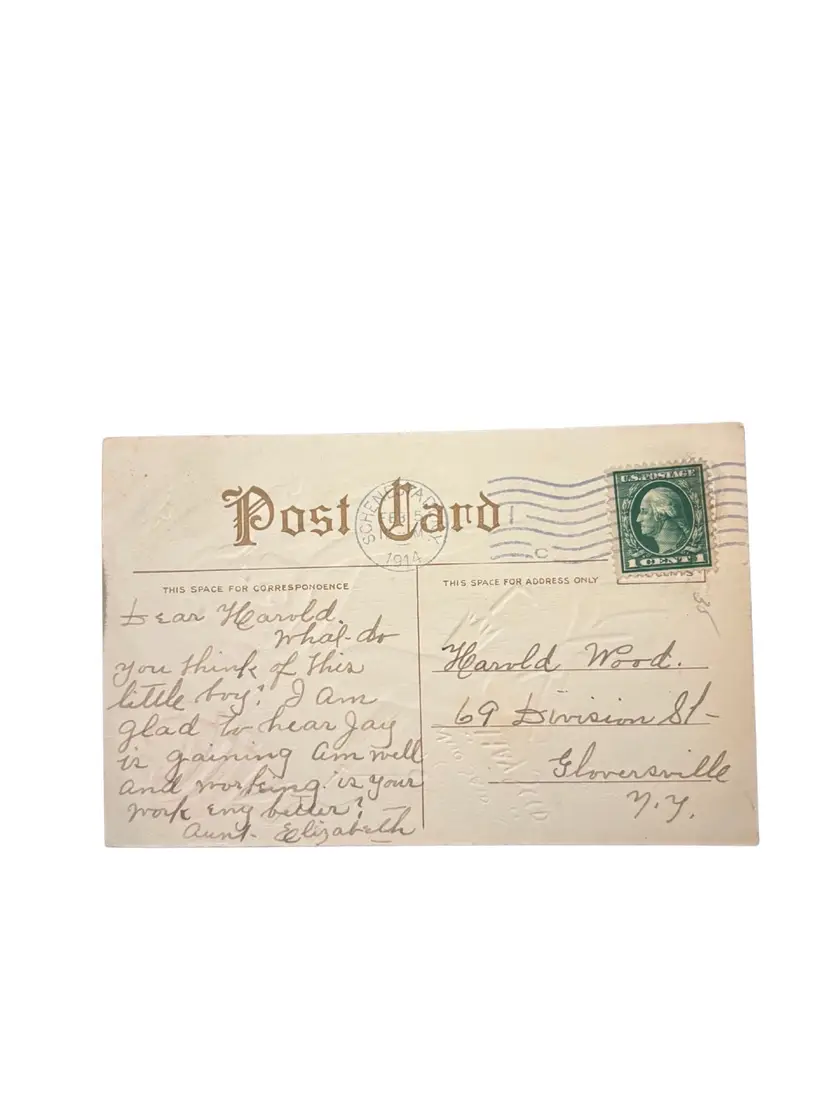 Post Card
SCHENECTADY
FEB 5
1914
U.S. POSTAGE
1 CENT 1
THIS SPACE FOR CORRESPONDENCE
THIS SPACE FOR ADDRESS ONLY
Dear Harold.
What do
you think of this
little boy? I am
glad to hear Jay
is gaining am well
and working is your
work eny better?
Aunt Elizabeth
Harold Wood.
69 Division St
Gloversville
N.Y.